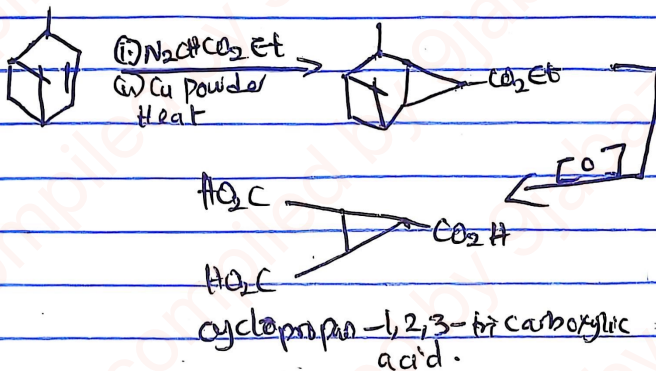 (i) N2CHCO2Et
(ii) Cu powder
Heat
CO2Et
[O]
HO2C
CO2H
HO2C
cyclopropan-1,2,3-tri carboxylic
acid.